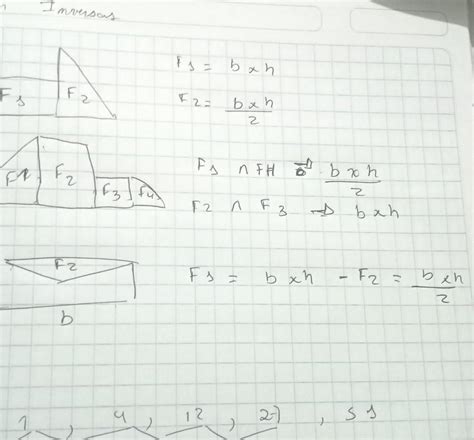 n Inversas
F1 = b x h
F1 F2 F2 = b x h
2
F1 F2 F3 F4
F1 ∩ FH → b x h
2
F2 ∩ F3 → b x h
F2 F1 = b x h - F2 = b x h
2
b
1, 4, 12, 27, 51